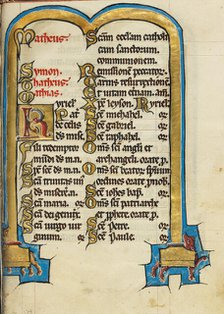 Matheus.
Symon.
Thatheus.
Mathias.
Kyriel'.
Pat' de celis
ds miserer
Fili redemptor
mundi ds m. n.
Sp's sce ds m. n.
Sca trinitas un'
ds miserere n.
Sca maria. or.
Sca dei genitrix.
Sca uirgo uir
ginum.
Scam eccl'am cathol'
cam sanctorum
communionem
Remissionem peccator'.
Carnis resurrectionem
et uitam eternam. am.
Xpe leyson. Kyriel'
Sce michahel. or
Sce gabriel. or
Sce raphael. or
Omnes sci angeli et
archangeli orate p'
Omnes sci beator' spirituu
ordines orate p' nob'
Sce iohannes bapt.
Omnes sci patriarche
et prophete. orate p'.
Sce Petre. or.
Sce Paule. or.